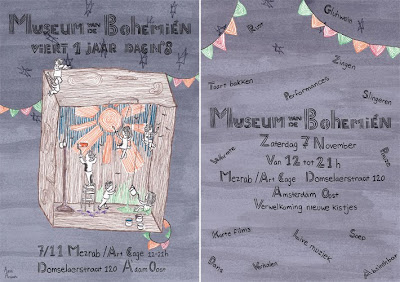 MUSEUM VAN DE BOHEMIÉN
VIERT 1 JAAR DAGN'S
7/11 MEZRAB / ART CAGE 12-21h
DOMSELAERSTRAAT 120 A'DAM OOST
Glühwein
Zingen
Taart bakken
Performances
Slingeren
MUSEUM VAN DE BOHEMIÉN
ZATERDAG 7 NOVEMBER
VAN 12 TOT 21h
MEZRAB / ART CAGE DOMSELAERSTRAAT 120
AMSTERDAM OOST
VERWELKOMING NIEUWE KISTJES
Korte films
Live muziek
Soep
Dans
Verhalen